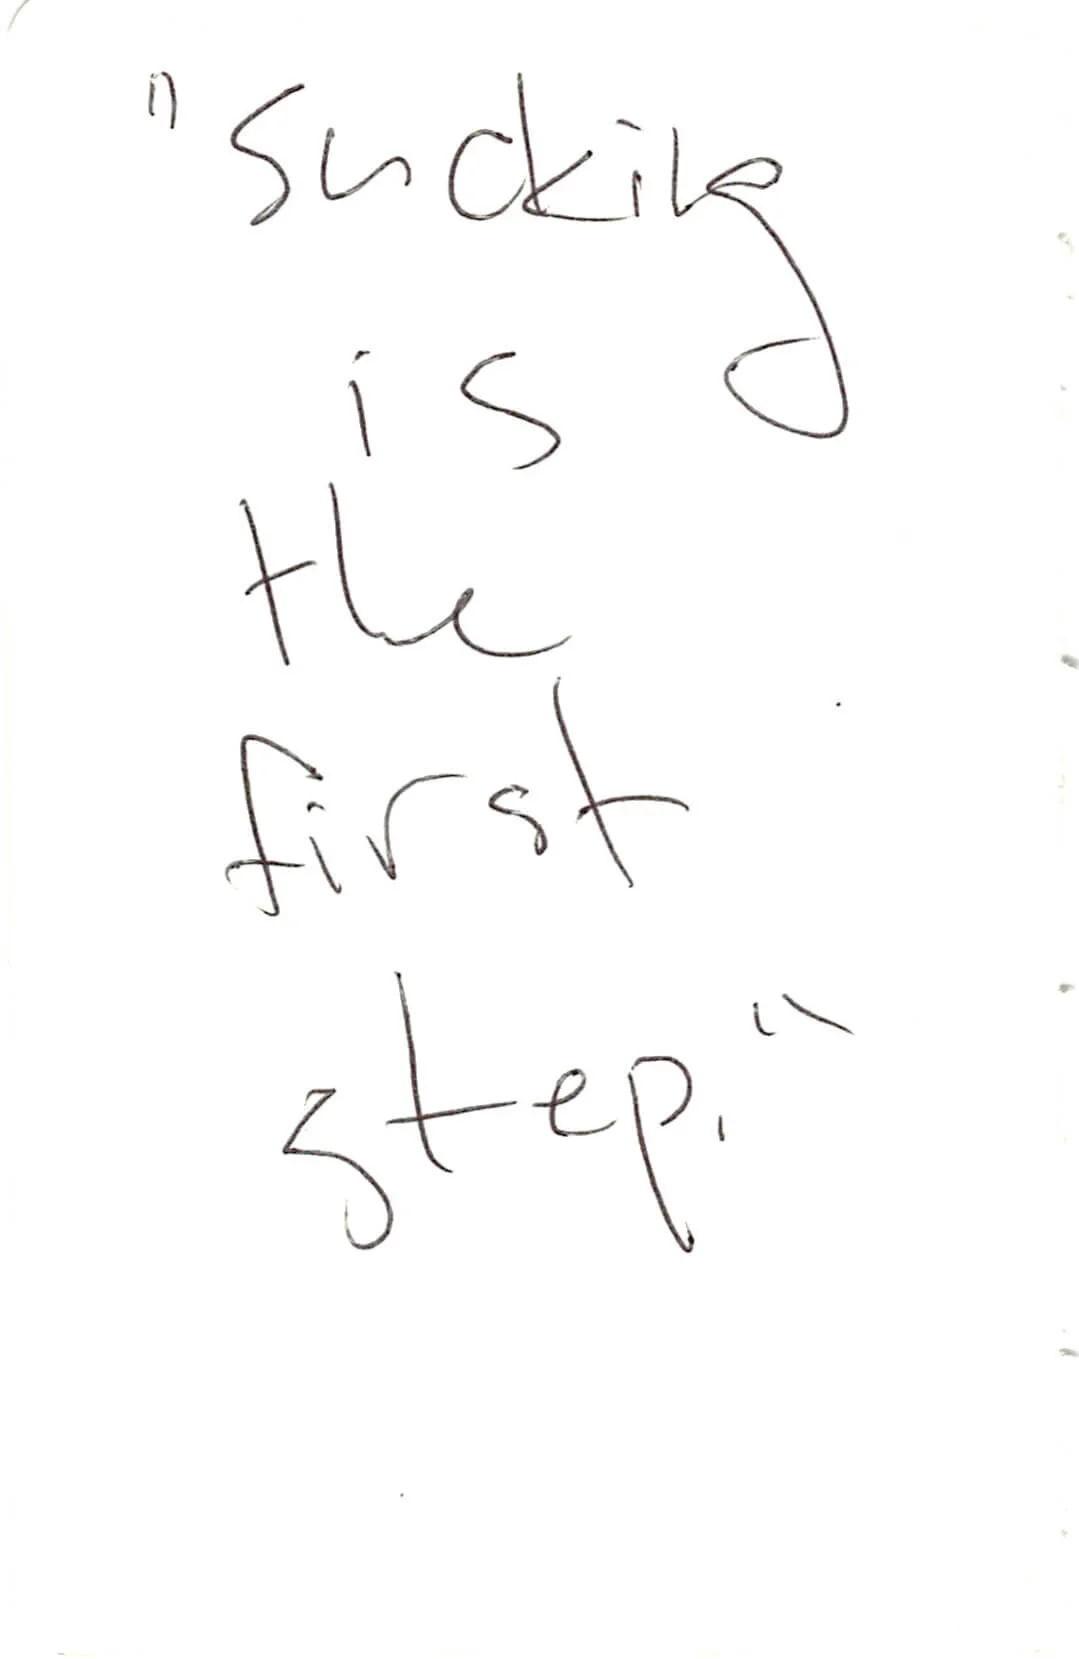 "Sucking
is
the
first
step."